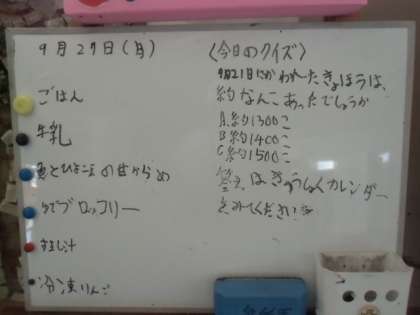 9月27日(月)
ごはん
牛乳
魚とひよこ豆の甘からめ
ゆでブロッコリー
すまし汁
冷凍りんご
〈今日のクイズ〉
9月21日につかわれたきょほうは、
約なんこあったでしょうか
A.約1300こ
B 約1400こ
C 約1500こ
答えはきゅうしょくカレンダー
をみてください